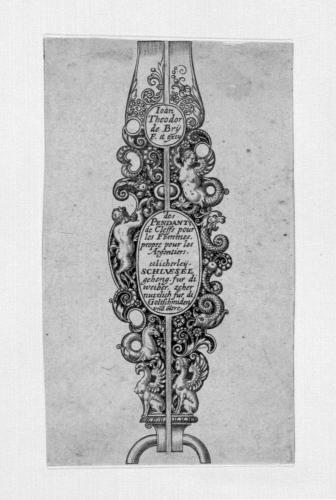 Ioan
Theodor
de Brÿ
F. et excu
des
PENDANTS
de Cleffs pour
les Femmes.
propre pour les
Argentiers.
etlicherleÿ
SCHLVSSEL
geheng, fur di
weiber,
nutzlich fur di
Goltschmiden